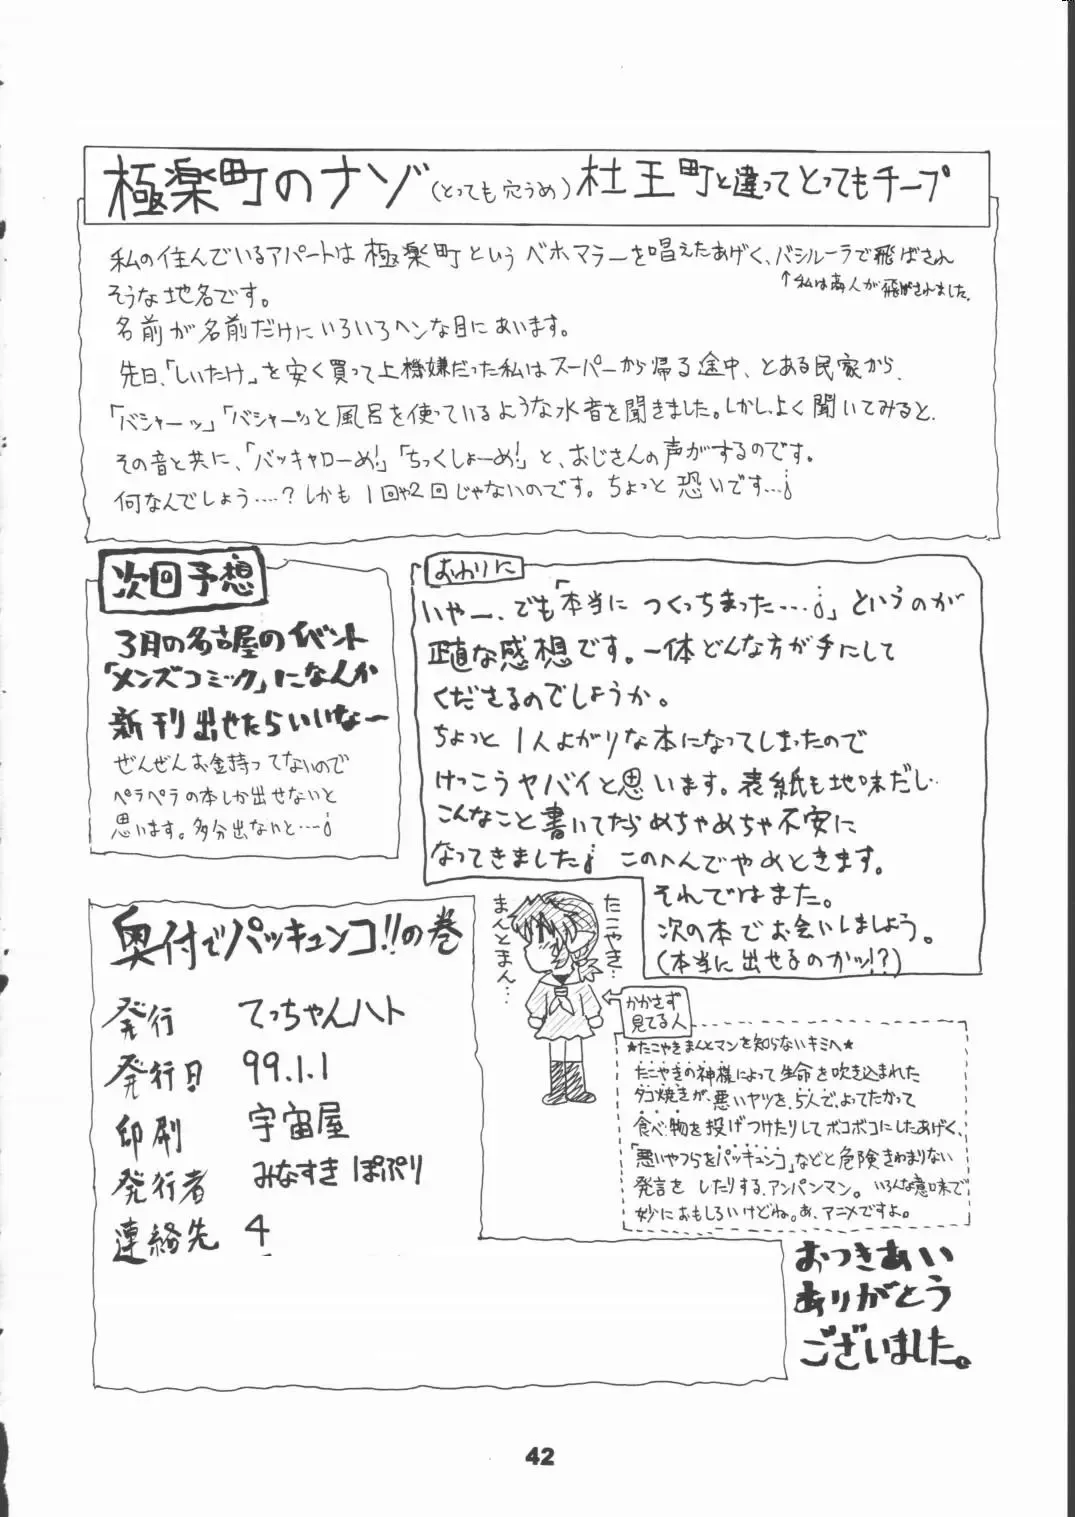 極楽町のナゾ(とっても穴うめ)杜王町と違ってとってもチープ
私の住んでいるアパートは極楽町というベホマラーを唱えたあげく、バシルーラで飛ばされ
そうな地名です。
↑私は商人が飛ばされました。
名前が名前だけにいろいろヘンな目にあいます。
先日、「しいたけ」を安く買って上機嫌だった私はスーパーから帰る途中、とある民家から、
「バシャーッ」「バシャーッ」と風呂を使っているような水音を聞きました。しかし、よく聞いてみると、
その音と共に、「バッキャローめ!」「ちっくしょーめ!」と、おじさんの声がするのです。
何なんでしょう‥‥?しかも1回や2回じゃないのです。ちょっと恐いです…。
次回予想
3月の名古屋のイベント
「メンズコミック」になんか
新刊出せたらいいなー
ぜんぜんお金持ってないので
ペラペラの本しか出せないと
思います。多分出ないと…。
おわりに
いやー、でも「本当につくっちまった…。」というのが
正直な感想です。一体どんな方が手にして
くださるのでしょうか。
ちょっと1人よがりな本になってしまったので
けっこうヤバイと思います。表紙も地味だし…
こんなこと書いてたらめちゃめちゃ不安に
なってきました。このへんでやめときます。
それではまた。
次の本でお会いしましょう。
(本当に出せるのかッ!?)
奥付でパッキュンコ!!の巻
発行 てっちゃんハト
発行日 99.1.1
印刷 宇宙屋
発行者 みなすき ぽぷり
連絡先 4
たこやき…
まんとまん…
かかさず
見てる人
★たこやきまんとマンを知らないキミへ★
たこやきの神様によって生命を吹き込まれた
タコ焼きが、悪いヤツを、5人で、よってたかって
食べ物を投げつけたりしてボコボコにしたあげく、
「悪いやつらをパッキュンコ」などと危険きわまりない
発言をしたりする、アンパンマン。いろんな意味で
妙におもしろいけどね。あ、アニメですよ。
おつきあい
ありがとう
ございました。
42